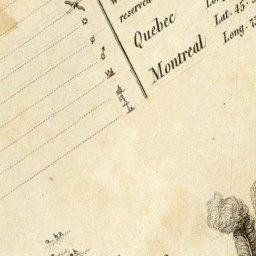 reserved
Quebec
Montreal
Lat. 45.
Long. 73